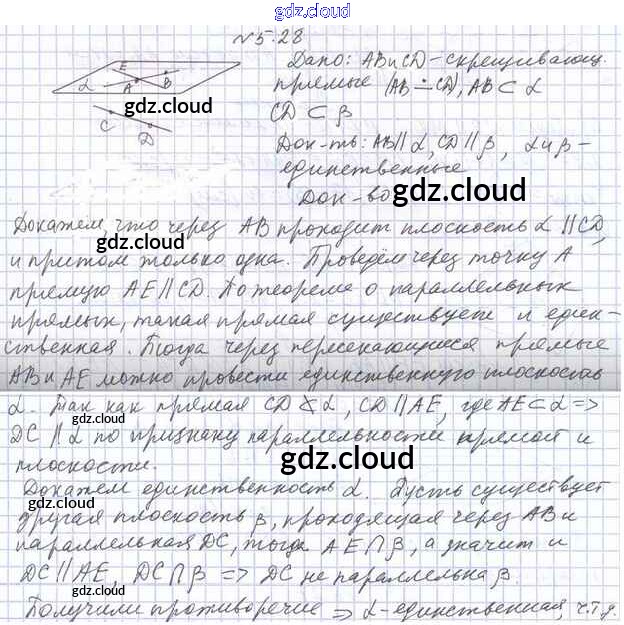 gdz.cloud
№5.28
Дано: AB и CD - скрещивающ.
прямые (AB ∸ CD), AB ⊂ α
CD ⊂ β
Док-ть: AB ∥ α, CD ∥ β, α и β -
единственные
Док-во
E
α A B
gdz.cloud
C
D
gdz.cloud
Докажем, что через AB проходит плоскость α ∥ CD,
gdz.cloud
и притом только одна. Проведём через точку A
прямую AE ∥ CD. По теореме о параллельных
прямых, такая прямая существует и един-
ственная. Тогда через пересекающиеся прямые
AB и AE можно провести единственную плоскость
α. Так как прямая CD ⊄ α, CD ∥ AE, где AE ⊂ α =>
gdz.cloud
DC ∥ α по признаку параллельности прямой и
плоскости.
gdz.cloud
Докажем единственность α. Пусть существует
другая плоскость β, проходящая через AB и
gdz.cloud
параллельная DC, тогда AE ∩ β, а значит и
DC ∥ AE, DC ∩ β => DC не параллельна β.
gdz.cloud
Получили противоречие => α - единственная, ч.т.д.